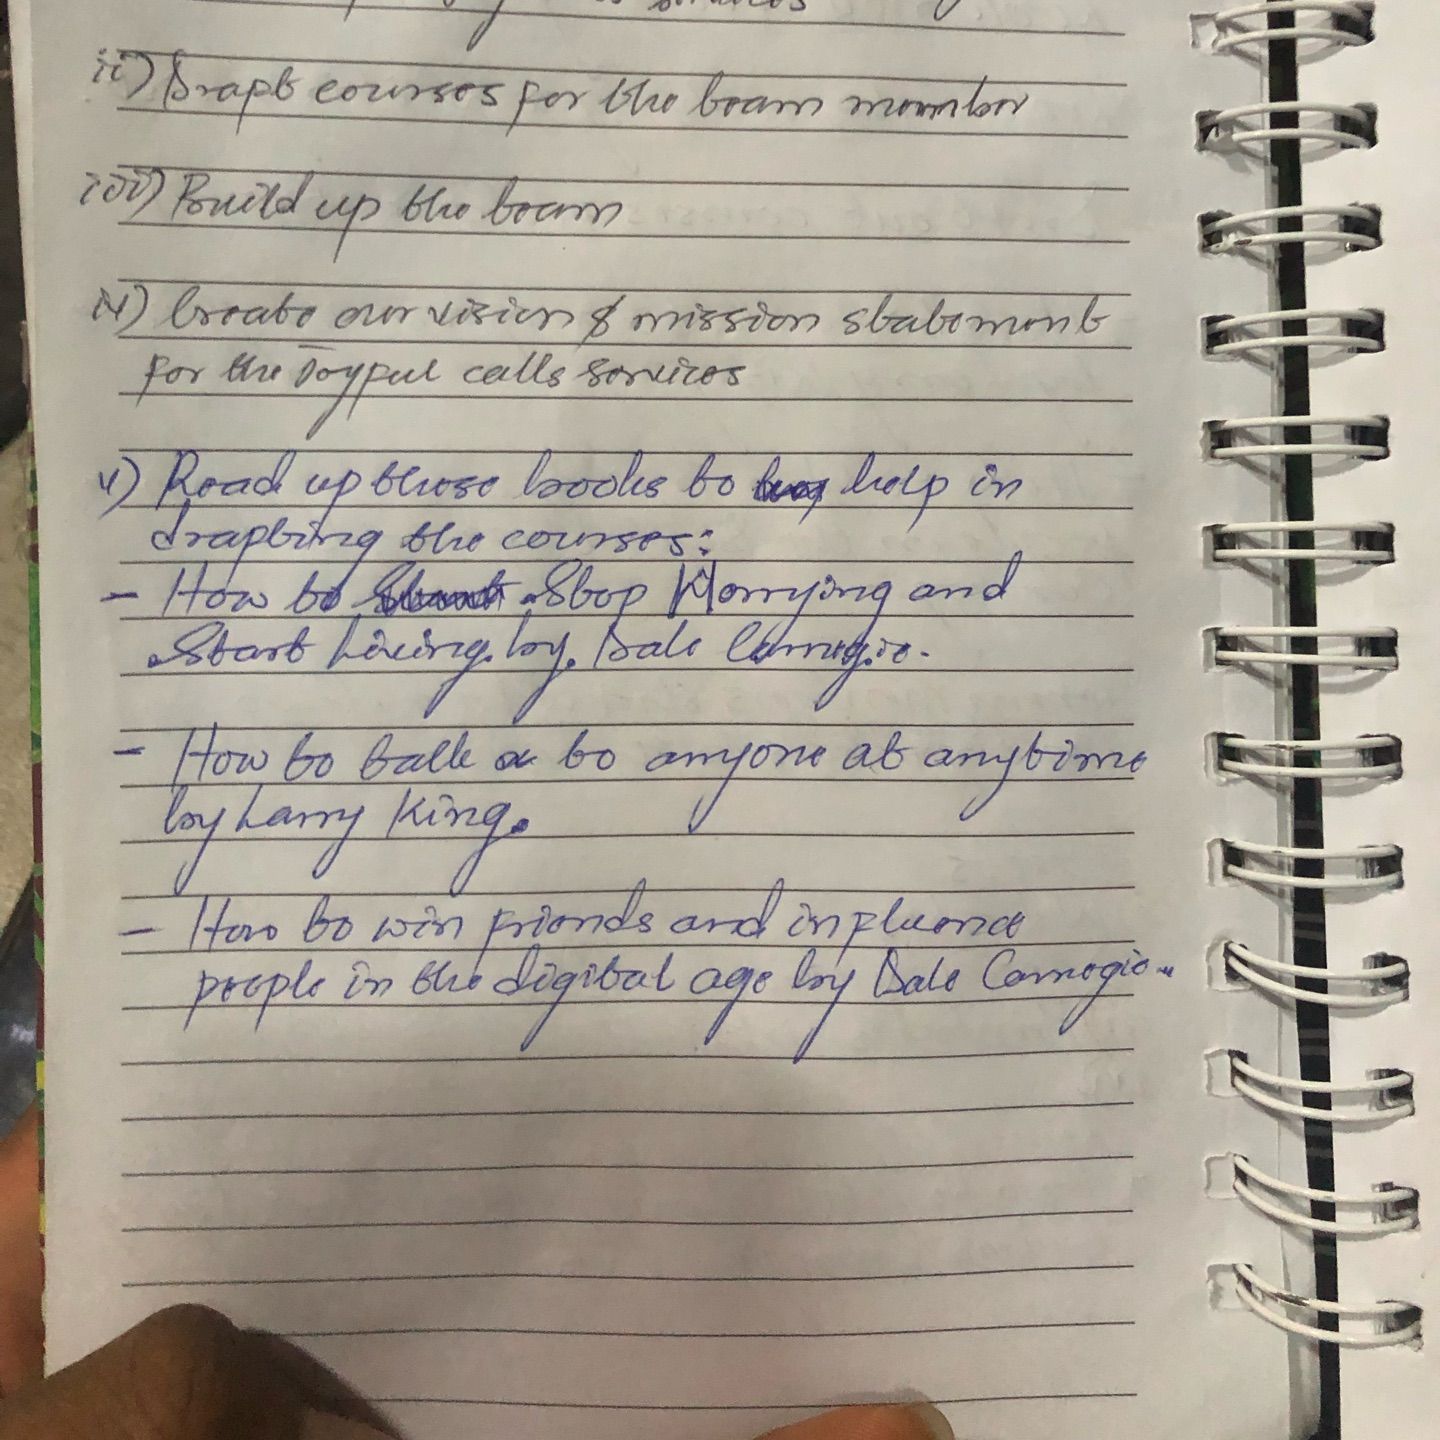 services
ii) Draft courses for the team member
iii) Build up the team
iv) Create our vision & mission statement
for the Joyful calls services
v) Read up these books to help in
drafting the courses:
- How to Stop Worrying and
Start Living. by. Dale Carnegie.
- How to talk to anyone at anytime
by Larry King.
- How to win friends and influence
people in the digital age by Dale Carnegie.